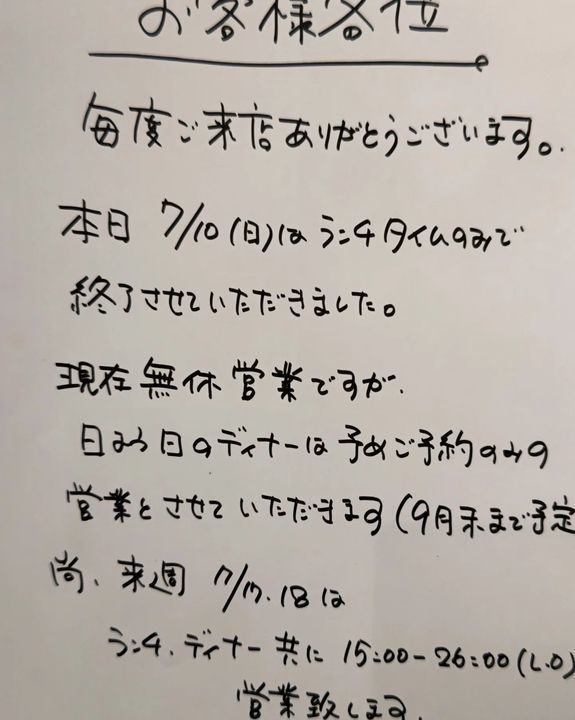 お客様各位
毎度ご来店ありがとうございます。
本日 7/10(日)はランチタイムのみで
終了させていただきました。
現在無休営業ですが、
日よう日のディナーは予めご予約のみの
営業とさせていただきます(9月末まで予定
尚、来週 7/17.18は
ランチ、ディナー共に 15:00-26:00(L.O)
営業致します。